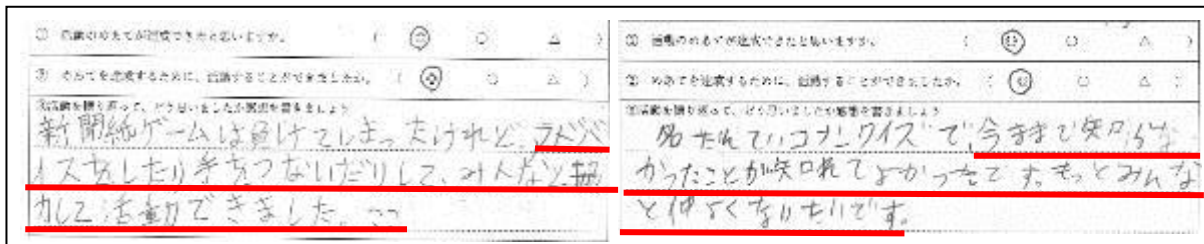 ① 活動のめあてが達成できたと思いますか。 ( ◎ ○ △ )
② めあてを達成するために、活動することができましたか。 ( ◎ ○ △ )
③活動を振り返って、どう思いましたか感想を書きましょう
新聞紙ゲームは負けてしまったけれど、アドバ
イスをしたり手をつないだりして、みんなと協
力して活動できました。
① 活動のめあてが達成できたと思いますか。 ( ◎ ○ △ )
② めあてを達成するために、活動することができましたか。 ( ◎ ○ △ )
③活動を振り返って、どう思いましたか感想を書きましょう
名たんていコナンクイズで、今まで知らな
かったことが知れてよかったです。もっとみんな
と仲よくなりたいです。